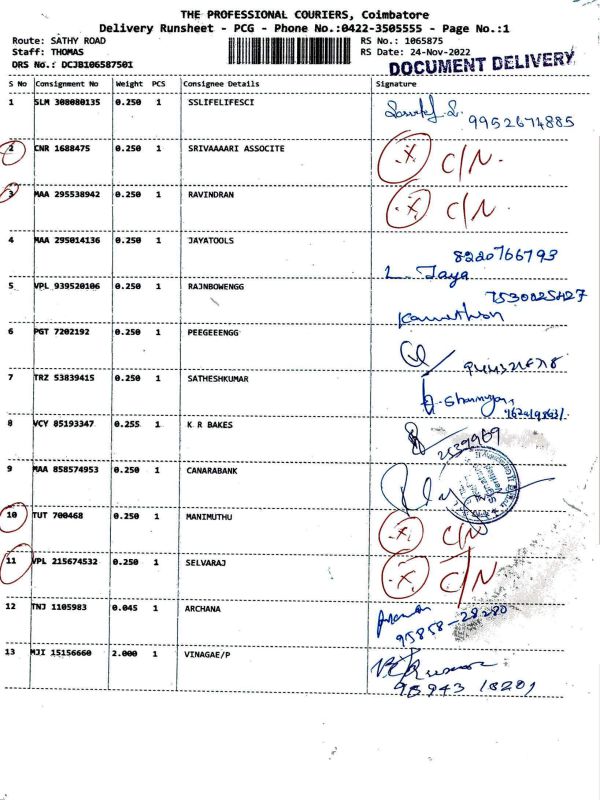 THE PROFESSIONAL COURIERS, Coimbatore
Delivery Runsheet - PCG - Phone No.:0422-3505555 - Page No.:1
Route: SATHY ROAD RS No.: 1065875
Staff: THOMAS RS Date: 24-Nov-2022
DRS No.: DCJB106587501 DOCUMENT DELIVERY
S No Consignment No Weight PCS Consignee Details Signature
1 SLM 308080135 0.250 1 SSLIFELIFESCI
9952674885
2 CNR 1688475 0.250 1 SRIVAAAARI ASSOCITE X C/N.
3 MAA 295538942 0.250 1 RAVINDRAN X C/N
4 MAA 295014136 0.250 1 JAYATOOLS 8220766793
L. Jaya
5 VPL 939520106 0.250 1 RAJNBOWENGG 7530025427
6 PGT 7202192 0.250 1 PEEGEEENGG
7 TRZ 53839415 0.250 1 SATHESHKUMAR
8 VCY 85193347 0.255 1 K R BAKES
2539969
9 MAA 858574953 0.250 1 CANARABANK
10 TUT 700468 0.250 1 MANIMUTHU X C/N
11 VPL 215674532 0.250 1 SELVARAJ X C/N
12 TNJ 1105983 0.045 1 ARCHANA
95858-28280
13 MJI 15156660 2.000 1 VINAGAE/P